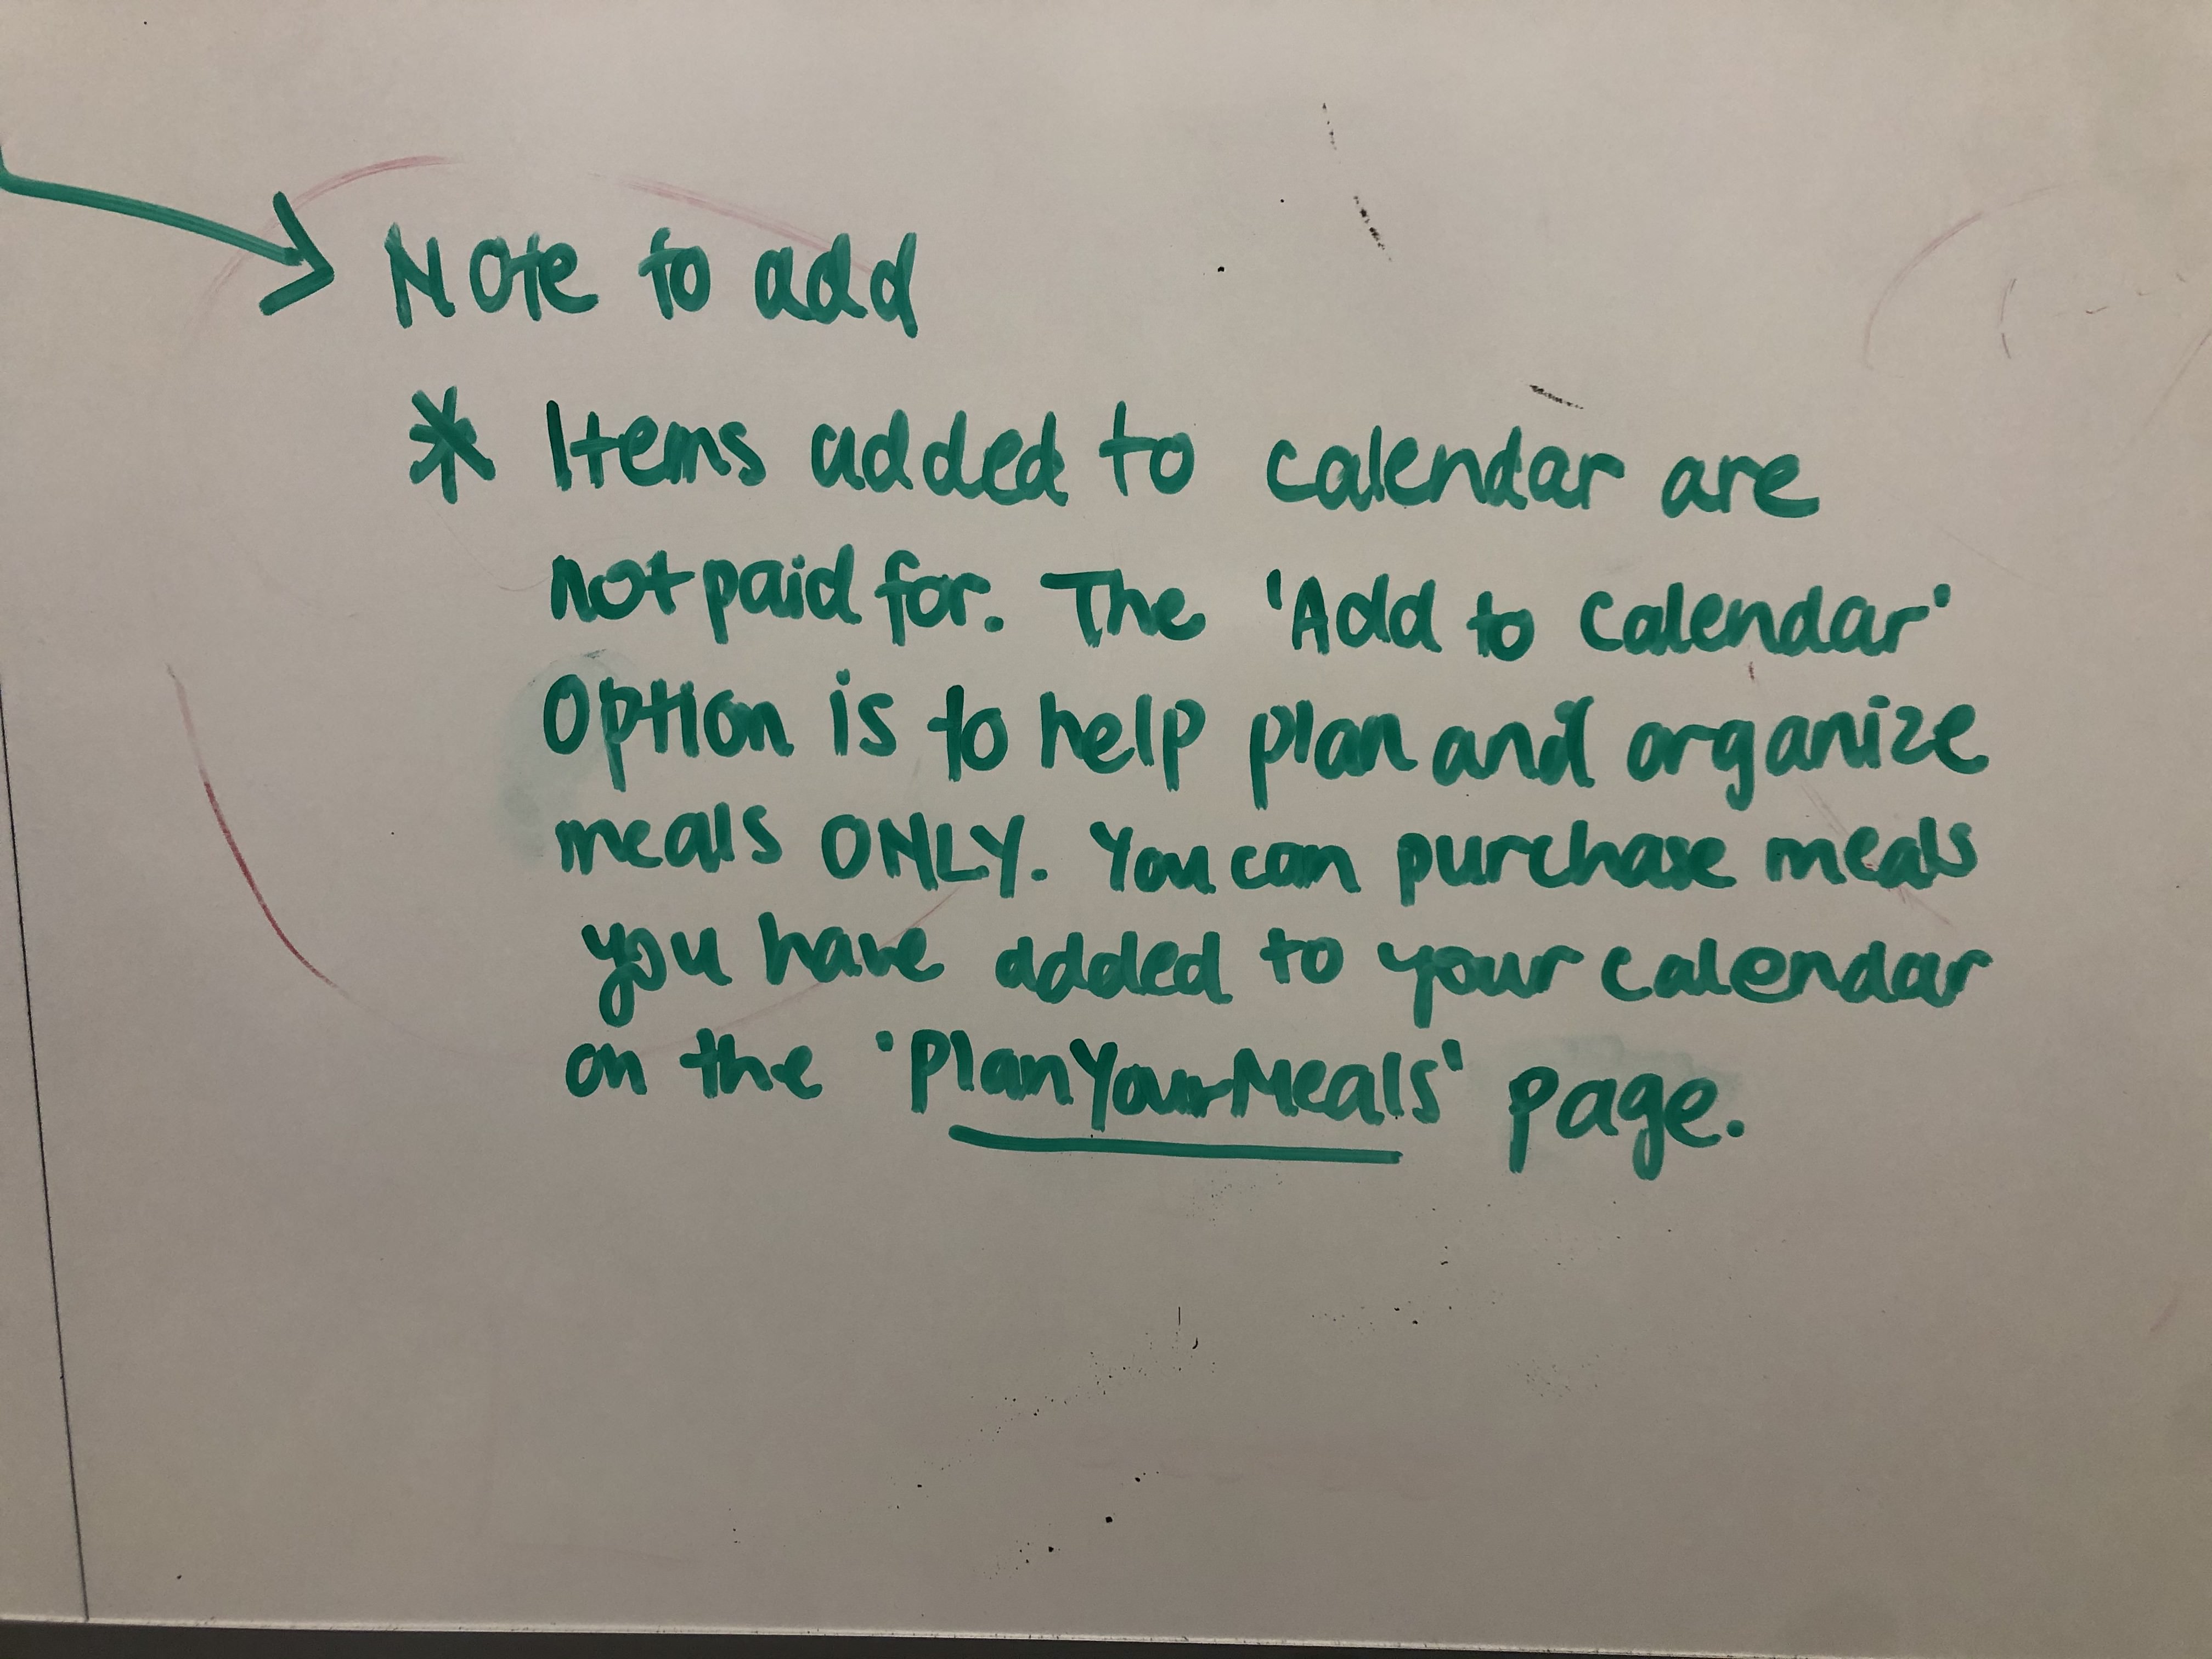 Note to add
* Items added to calendar are
not paid for. The 'Add to Calendar'
Option is to help plan and organize
meals ONLY. You can purchase meals
you have added to your calendar
on the 'Plan Your Meals' page.